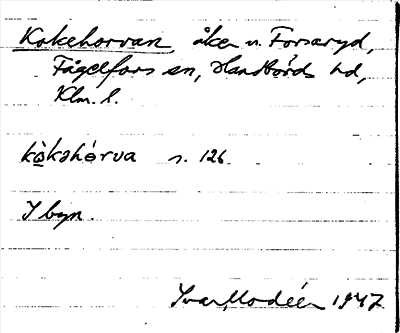 Kokehorvan, åker u. Forsaryd,
Fågelfors sn, Handbörds hd,
Klm. l.
kòkəhórva s. 126
I byn.
Ivar Modéer 1947